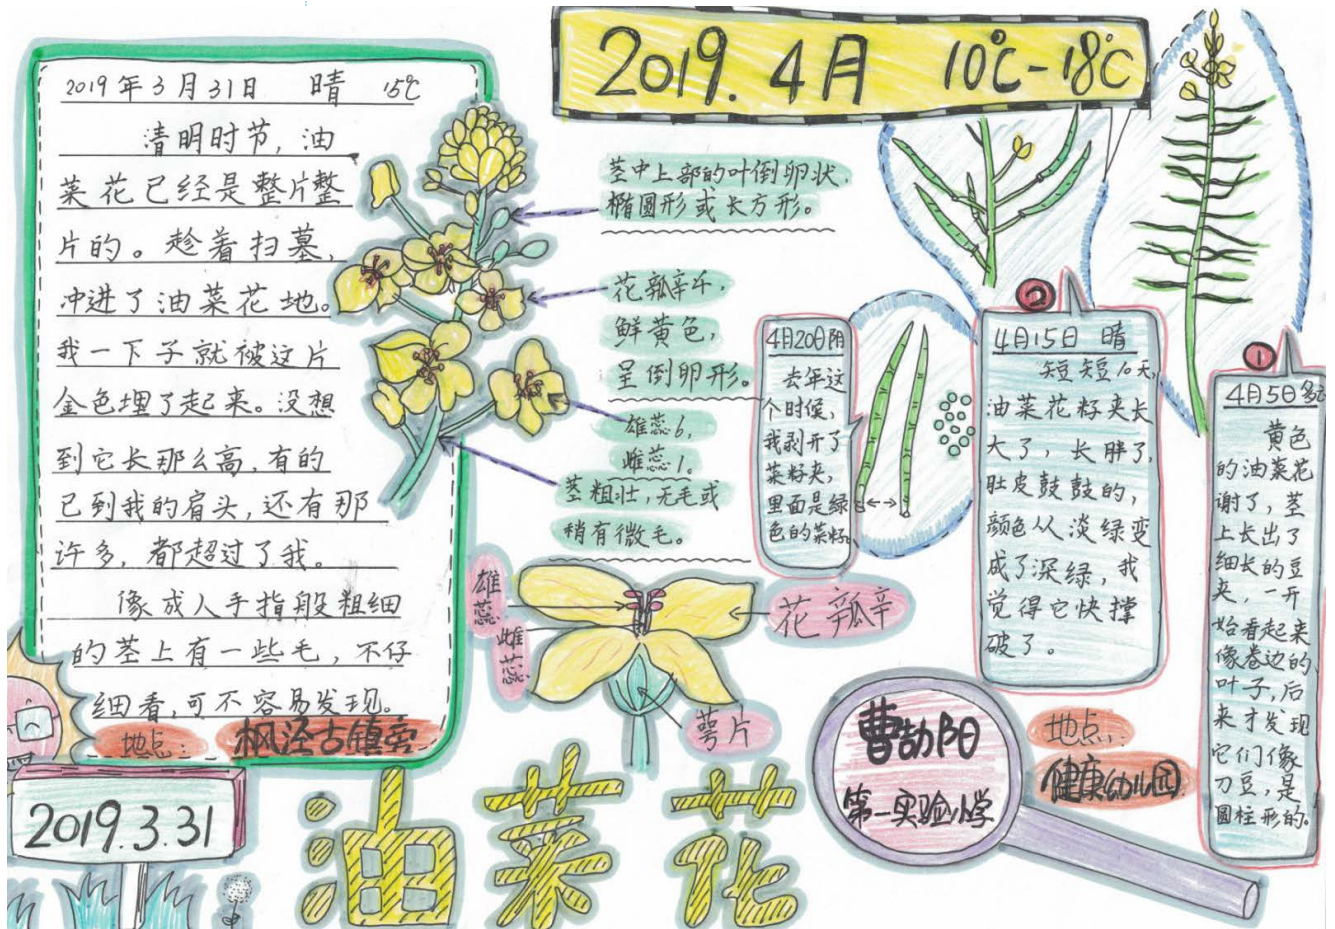 2019年3月31日 晴 15℃
清明时节，油
菜花已经是整片整
片的。趁着扫墓，
冲进了油菜花地。
我一下子就被这片
金色埋了起来。没想
到它长那么高，有的
已到我的肩头，还有那
许多，都超过了我。
像成人手指般粗细
的茎上有一些毛，不仔
细看，可不容易发现。
地点：枫泾古镇旁
2019.3.31
2019.4月 10℃-18℃
茎中上部的叶倒卵状，
椭圆形或长方形。
花瓣
鲜黄色，
呈倒卵形。
雄蕊6，
雌蕊1。
茎粗壮，无毛或
稍有微毛。
雄蕊
雌蕊
花瓣
萼片
4月20日阳
去年这
个时候，
我剥开了
菜籽夹，
里面是绿
色的菜籽。
②
4月15日 晴
短短10天，
油菜花籽夹长
大了，长胖了，
肚皮鼓鼓的，
颜色从淡绿变
成了深绿，我
觉得它快撑
破了。
①
4月5日多云
黄色
的油菜花
谢了，茎
上长出了
细长的豆
夹，一开
始看起来
像卷边的
叶子，后
来才发现
它们像
刀豆，是
圆柱形的。
曹劼阳
第一实验小学
地点：
健康幼儿园
油菜花